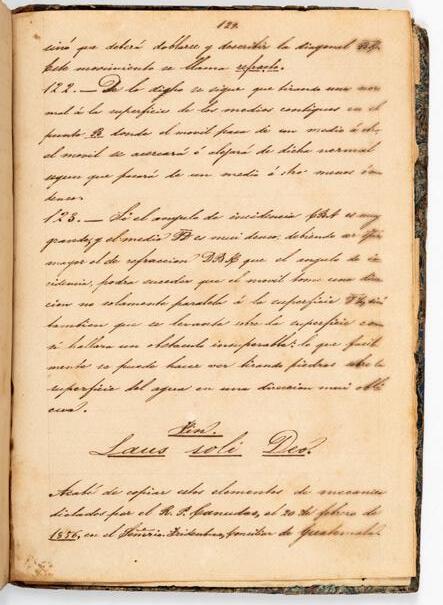 129.
sinó que deberá doblarse y describir la diagonal
Este movimiento se llama refracto.
122.— De lo dicho se sigue que tirando una nor
mal á la superficie de los medios contiguos en el
punto B donde el movil pasa de un medio á otro,
el movil se acercará ó alejará de dicha normal
segun que pasará de un medio á otro menos ó
denso.
123.— Si el angulo de incidencia CBA es muy
grande, y el medio es mui denso, debiendo ser
mayor el de refraccion que el angulo de in
cidencia, podra suceder que el movil tome una direc
cion no solamente paralela á la superficie
tambien que se levante sobre la superficie como
si hallara un obstaculo insuperable; lo que facil
mente se puede hacer ver tirando piedras sobre la
superficie del agua en una direccion mui obli
cua.
Fin.
Laus soli Deo.
Acabé de copiar estos elementos de mecanica
dictados por el R. P. Canudas, el 20 de febrero de
1856, en el Semin.o Conciliar de Guatemala.